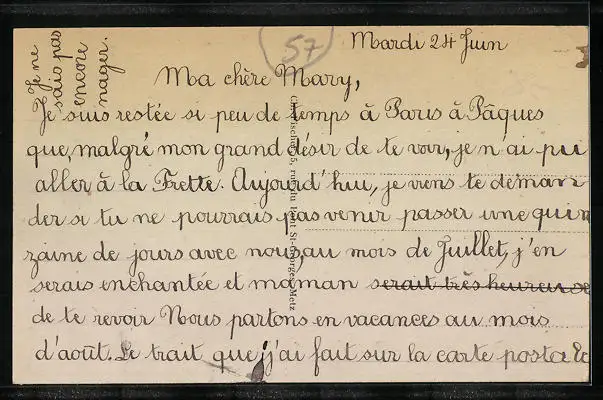 57
Mardi 24 Juin
Je ne
sais pas
encore
nager.
Ma chère Mary,
Je suis restée si peu de temps à Paris à Pâques
que, malgré mon grand désir de te voir, je n'ai pu
aller à la Frette. Aujourd'hui, je viens te deman
der si tu ne pourrais pas venir passer une quin
zaine de jours avec nous, au mois de Juillet, j'en
serais enchantée et maman serait très heureuse
de te revoir Nous partons en vacances au mois
d'août. Le trait que j'ai fait sur la carte postale
St-Georges, Metz